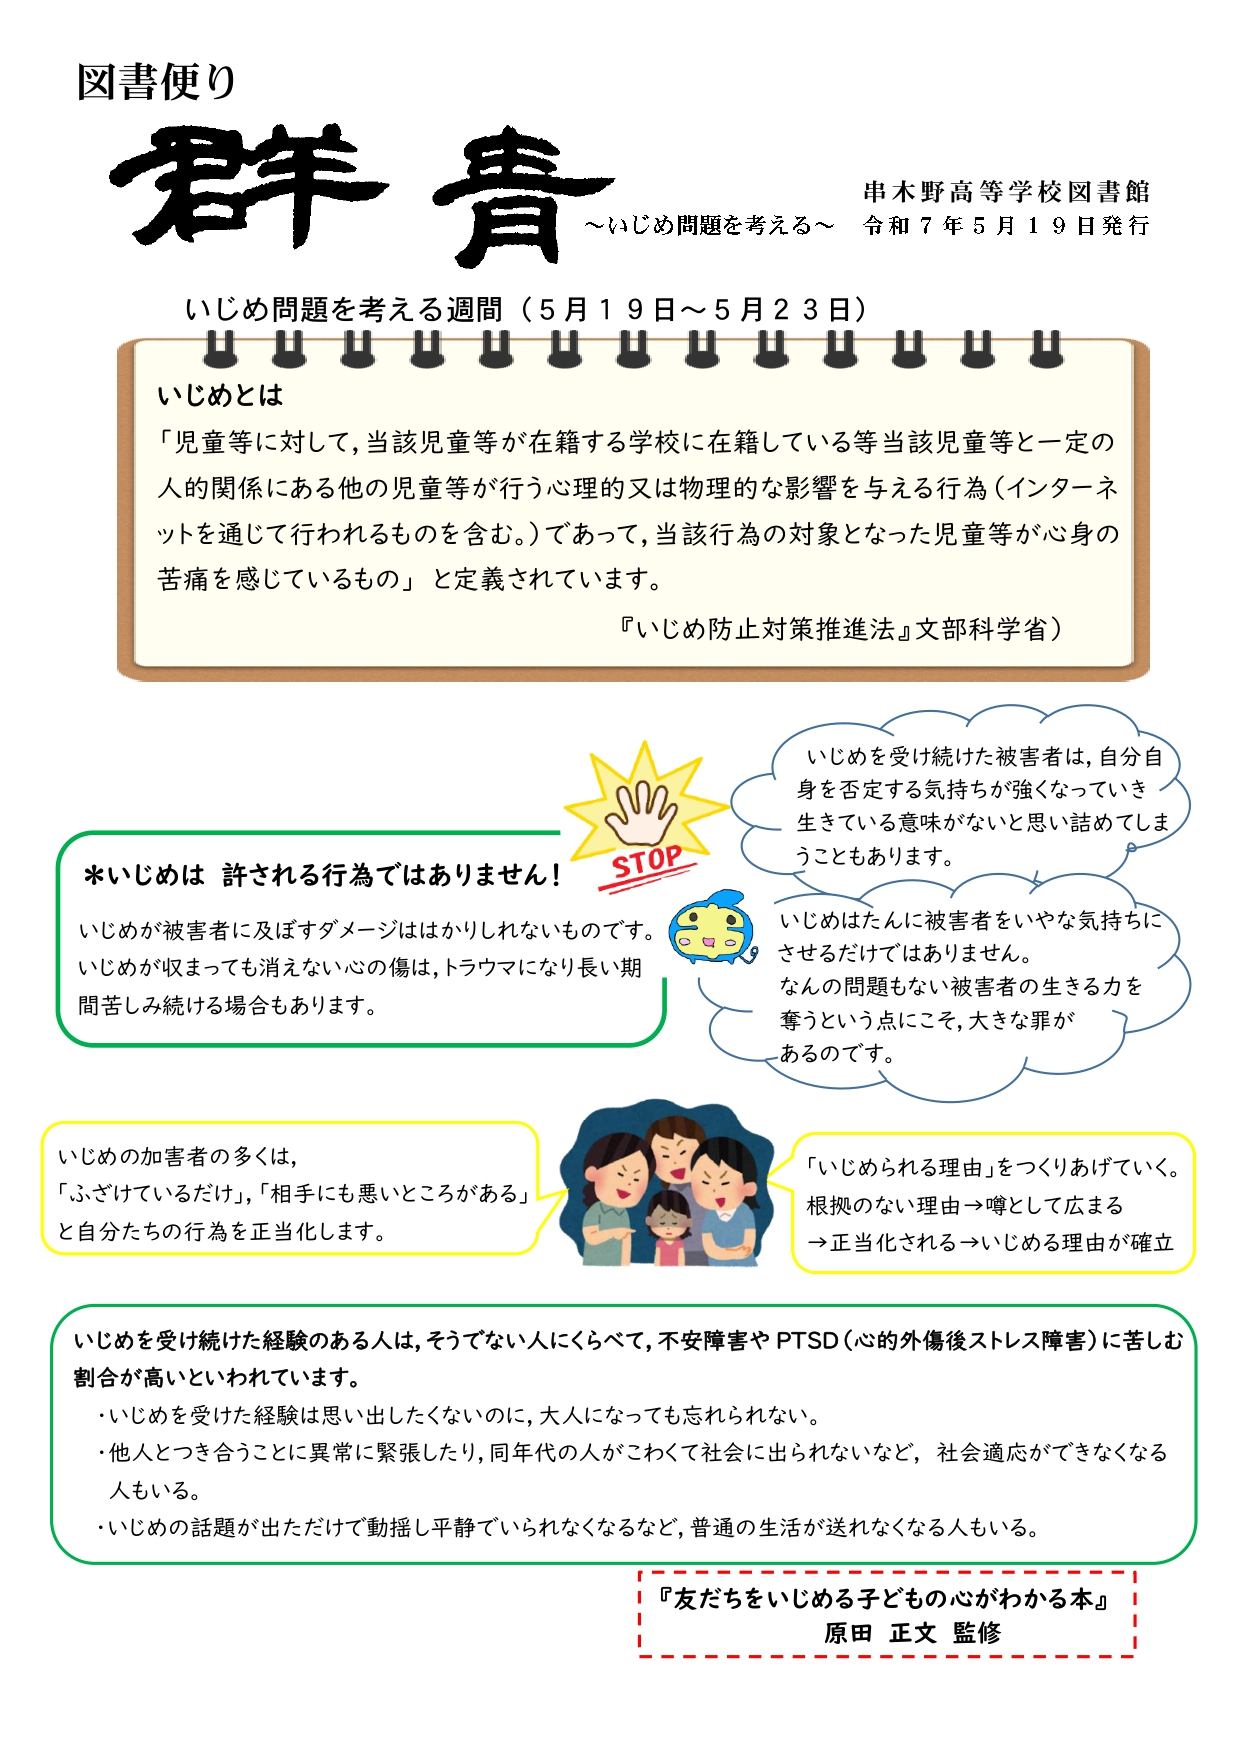 図書便り
群青
～いじめ問題を考える～
串木野高等学校図書館
令和７年５月１９日発行
いじめ問題を考える週間（５月１９日～５月２３日）
いじめとは
「児童等に対して,当該児童等が在籍する学校に在籍している等当該児童等と一定の
人的関係にある他の児童等が行う心理的又は物理的な影響を与える行為（インターネ
ットを通じて行われるものを含む。）であって,当該行為の対象となった児童等が心身の
苦痛を感じているもの」 と定義されています。
『いじめ防止対策推進法』文部科学省）
いじめを受け続けた被害者は,自分自
身を否定する気持ちが強くなっていき
生きている意味がないと思い詰めてしま
うこともあります。
STOP
＊いじめは 許される行為ではありません！
いじめが被害者に及ぼすダメージははかりしれないものです。
いじめが収まっても消えない心の傷は,トラウマになり長い期
間苦しみ続ける場合もあります。
いじめはたんに被害者をいやな気持ちに
させるだけではありません。
なんの問題もない被害者の生きる力を
奪うという点にこそ,大きな罪が
あるのです。
いじめの加害者の多くは,
「ふざけているだけ」,「相手にも悪いところがある」
と自分たちの行為を正当化します。
「いじめられる理由」をつくりあげていく。
根拠のない理由→噂として広まる
→正当化される→いじめる理由が確立
いじめを受け続けた経験のある人は,そうでない人にくらべて,不安障害や PTSD（心的外傷後ストレス障害）に苦しむ
割合が高いといわれています。
・いじめを受けた経験は思い出したくないのに,大人になっても忘れられない。
・他人とつき合うことに異常に緊張したり,同年代の人がこわくて社会に出られないなど, 社会適応ができなくなる
人もいる。
・いじめの話題が出ただけで動揺し平静でいられなくなるなど,普通の生活が送れなくなる人もいる。
『友だちをいじめる子どもの心がわかる本』
原田 正文 監修